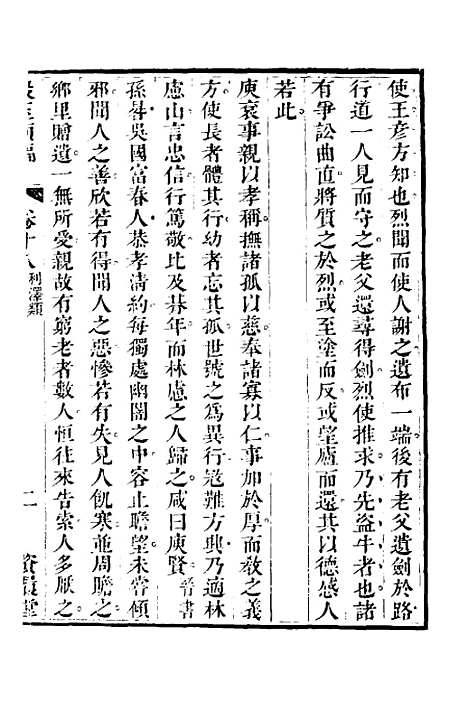 使王彥方知也烈聞而使人謝之遺布一端後有老父遺劍於路
行道一人見而守之老父還尋得劍烈使推求乃先盜牛者也諸
有爭訟曲直將質之於烈或至塗而反或望廬而還其以德感人
若此
庾袞事親以孝稱撫諸孤以慈奉諸寡以仁事加於厚而教之義
方使長者體其行幼者忘其孤世號之為異行寇難方興乃適林
慮山言忠信行篤敬比及朞年而林慮之人歸之咸曰庾賢 晉書
孫晷吳國富春人恭孝清約每獨處幽闇之中容止瞻望未嘗傾
邪聞人之善欣若有得聞人之惡慘若有失見人飢寒並周贍之
鄉里贈遺一無所受親故有窮老者數人恒往來告索人多厭之
卷十八 利澤類 二